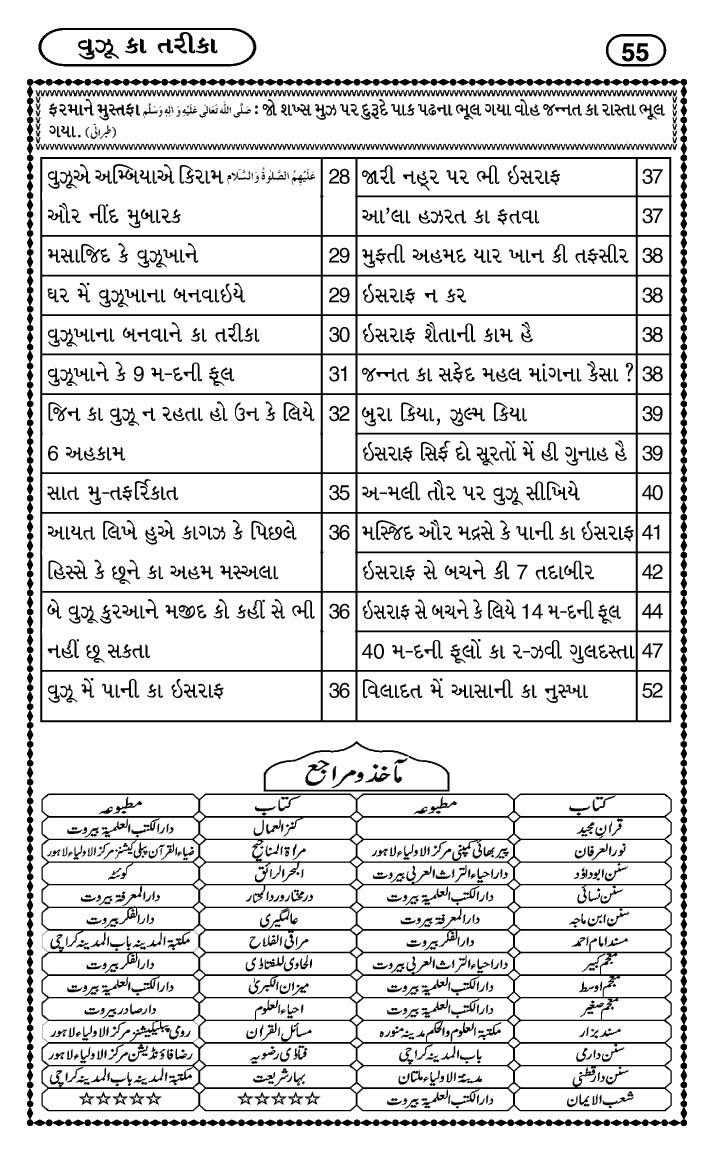 વુઝૂ કા તરીકા
55
ફરમાને મુસ્તફા صَلَّى اللّٰهُ تَعَالٰى عَلَيْهِ وَاٰلِهٖ وَسَلَّم : જો શખ્સ મુઝ પર દુરૂદે પાક પઢના ભૂલ ગયા વોહ જન્નત કા રાસ્તા ભૂલ
ગયા. (طبرانی)
વુઝૂએ અમ્બિયાએ કિરામ عَلَيْهِمُ الصَّلٰوةُ وَالسَّلَام 28
ઔર નીંદ મુબારક
મસાજિદ કે વુઝૂખાને 29
ઘર મેં વુઝૂખાના બનવાઇયે 29
વુઝૂખાના બનવાને કા તરીકા 30
વુઝૂખાને કે 9 મ-દની ફૂલ 31
જિન કા વુઝૂ ન રહતા હો ઉન કે લિયે 32
6 અહકામ
સાત મુ-તફર્રિકાત 35
આયત લિખે હુએ કાગઝ કે પિછલે 36
હિસ્સે કે છૂને કા અહમ મસ્અલા
બે વુઝૂ કુરઆને મજીદ કો કહીં સે ભી 36
નહીં છૂ સકતા
વુઝૂ મેં પાની કા ઇસરાફ 36
જારી નહ્‌ર પર ભી ઇસરાફ 37
આ'લા હઝરત કા ફતવા 37
મુફ્તી અહમદ યાર ખાન કી તફ્સીર 38
ઇસરાફ ન કર 38
ઇસરાફ શૈતાની કામ હૈ 38
જન્નત કા સફેદ મહલ માંગના કૈસા ? 38
બુરા કિયા, ઝુલ્મ કિયા 39
ઇસરાફ સિર્ફ દો સૂરતોં મેં હી ગુનાહ હૈ 39
અ-મલી તૌર પર વુઝૂ સીખિયે 40
મસ્જિદ ઔર મદ્રસે કે પાની કા ઇસરાફ 41
ઇસરાફ સે બચને કી 7 તદાબીર 42
ઇસરાફ સે બચને કે લિયે 14 મ-દની ફૂલ 44
40 મ-દની ફૂલોં કા ર-ઝવી ગુલદસ્તા 47
વિલાદત મેં આસાની કા નુસ્ખા 52
مآخذ و مراجع
کتاب مطبوعہ کتاب مطبوعہ
قرانِ مجید کنزالعمال دارالکتب العلمیۃ بیروت
نورالعرفان پیربھائی کمپنی مرکزالاولیاء لاہور مراۃ المناجیح ضیاءالقرآن پبلی کیشنز مرکزالاولیاء لاہور
سنن ابوداؤد داراحیاء التراث العربی بیروت البحرالرائق کوئٹہ
سنن نسائی دارالکتب العلمیۃ بیروت درمختار وردالمحتار دارالمعرفۃ بیروت
سنن ابن ماجہ دارالمعرفۃ بیروت عالمگیری دارالفکر بیروت
مسند امام احمد دارالفکر بیروت مراقی الفلاح مکتبۃ المدینہ باب المدینہ کراچی
معجم کبیر داراحیاء التراث العربی بیروت الحاوی للفتاوٰی دارالفکر بیروت
معجم اوسط دارالکتب العلمیۃ بیروت میزان الکبریٰ دارالکتب العلمیۃ بیروت
معجم صغیر دارالکتب العلمیۃ بیروت احیاءالعلوم دارصادر بیروت
مسند بزار مکتبۃ العلوم والحکم مدینہ منورہ مسائل القران رومی پبلیکیشنز مرکزالاولیاء لاہور
سنن دارمی باب المدینہ کراچی فتاوٰی رضویہ رضا فاؤنڈیشن مرکزالاولیاء لاہور
سنن دارقطنی مدینۃ الاولیاء ملتان بہارشریعت مکتبۃ المدینہ باب المدینہ کراچی
شعب الایمان دارالکتب العلمیۃ بیروت ☆☆☆☆☆ ☆☆☆☆☆